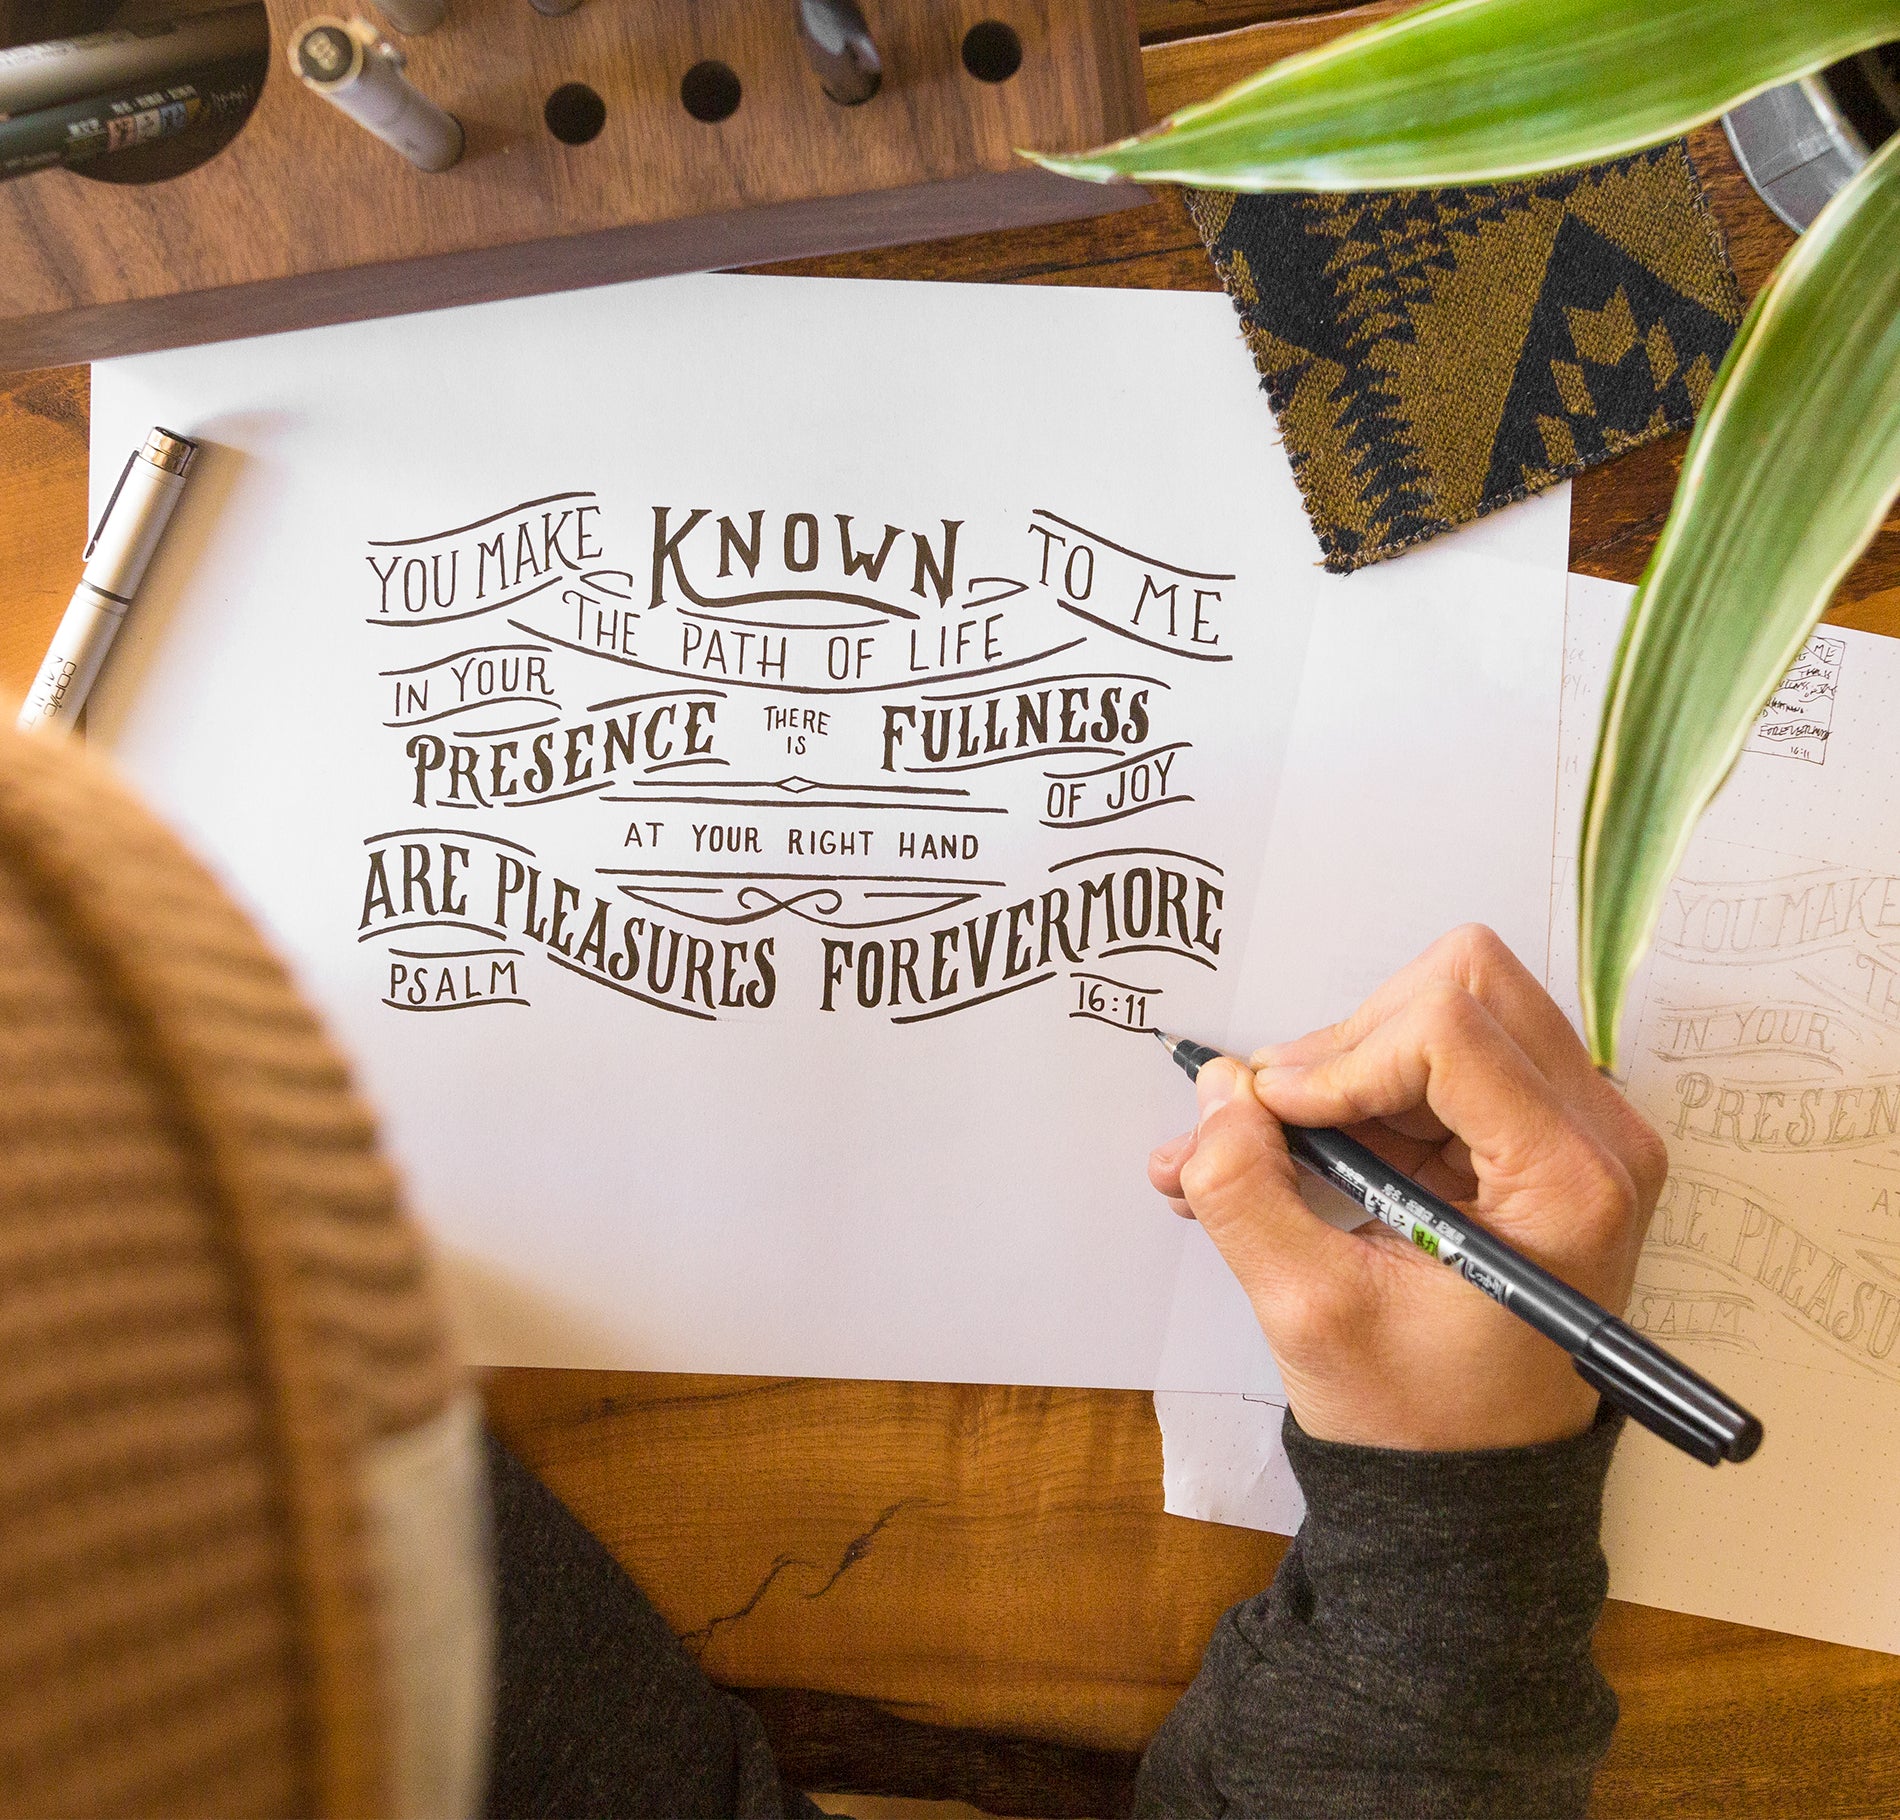 YOU MAKE KNOWN TO ME
THE PATH OF LIFE
IN YOUR
PRESENCE THERE IS FULLNESS
OF JOY
AT YOUR RIGHT HAND
ARE PLEASURES FOREVERMORE
PSALM 16:11
COPIC
ME
16:11
YOU MAKE
IN YOUR
PRESEN
RE PLEASU
SALM